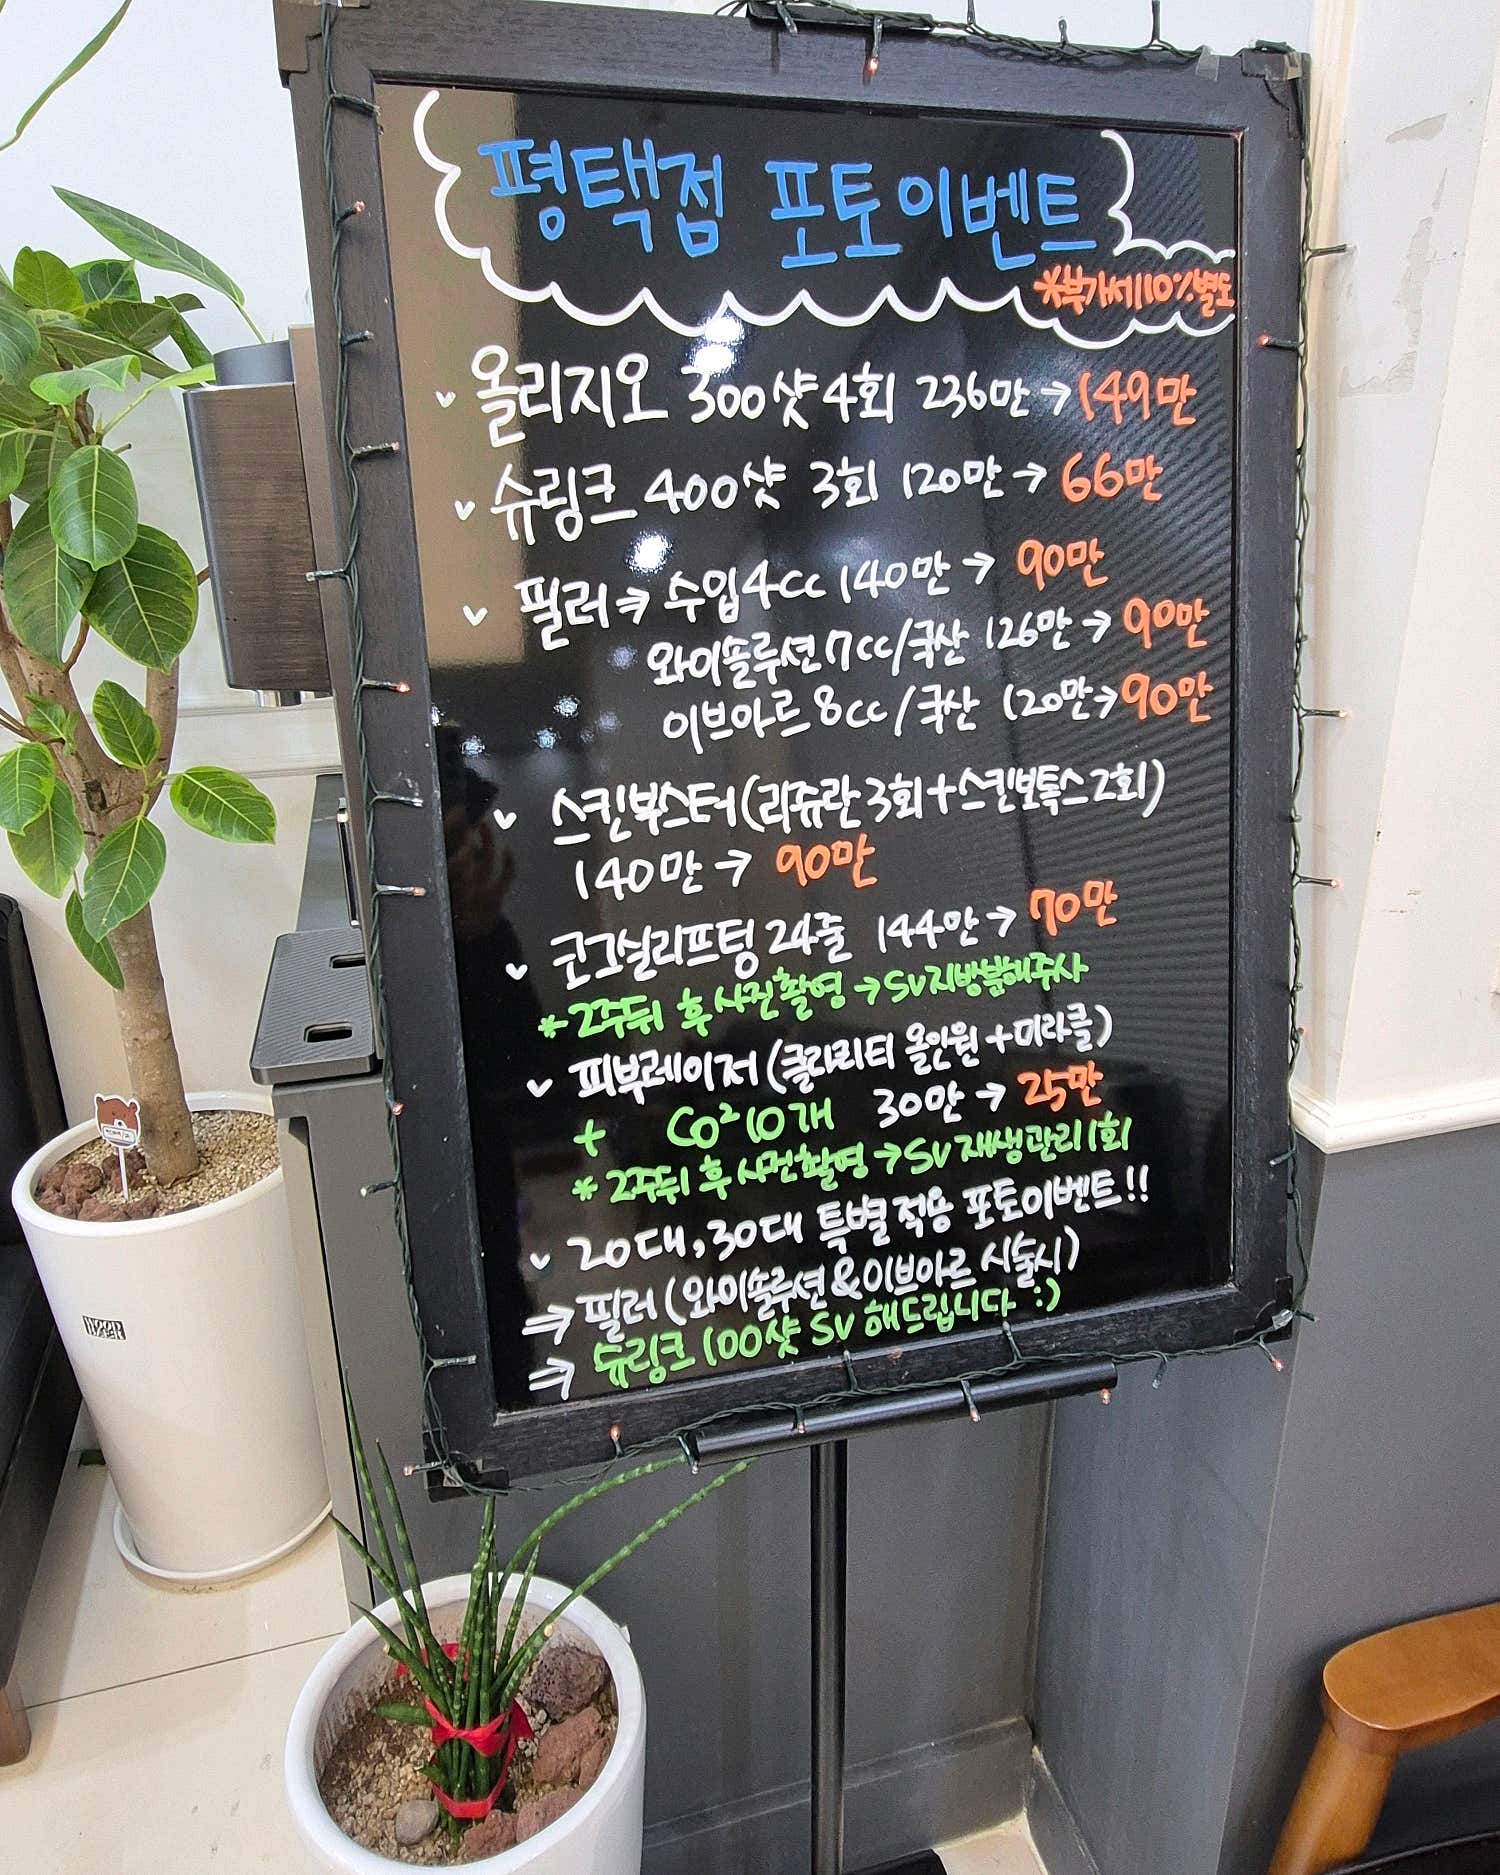 평택점 포토이벤트
*부가세10%별도
올리지오 300샷 4회 236만→149만
슈링크 400샷 3회 120만→66만
필러⇒ 수입4cc 140만→ 90만
와이솔루션7cc/국산 126만→90만
이브아르8cc/국산 120만→90만
스킨부스터(리쥬란3회+스킨보톡스2회)
140만→ 90만
군그실리프팅 24줄 144만→70만
*2주뒤 후 사진촬영→SV지방분해주사
피부레이저(클라리티 올인원+미라클)
+ Co²10개 30만→25만
*2주뒤 후 사진촬영→SV재생관리1회
20대,30대 특별적용 포토이벤트!!
⇒필러(와이솔루션&이브아르 시술시)
⇒ 슈링크 100샷 SV 해드립니다 :)